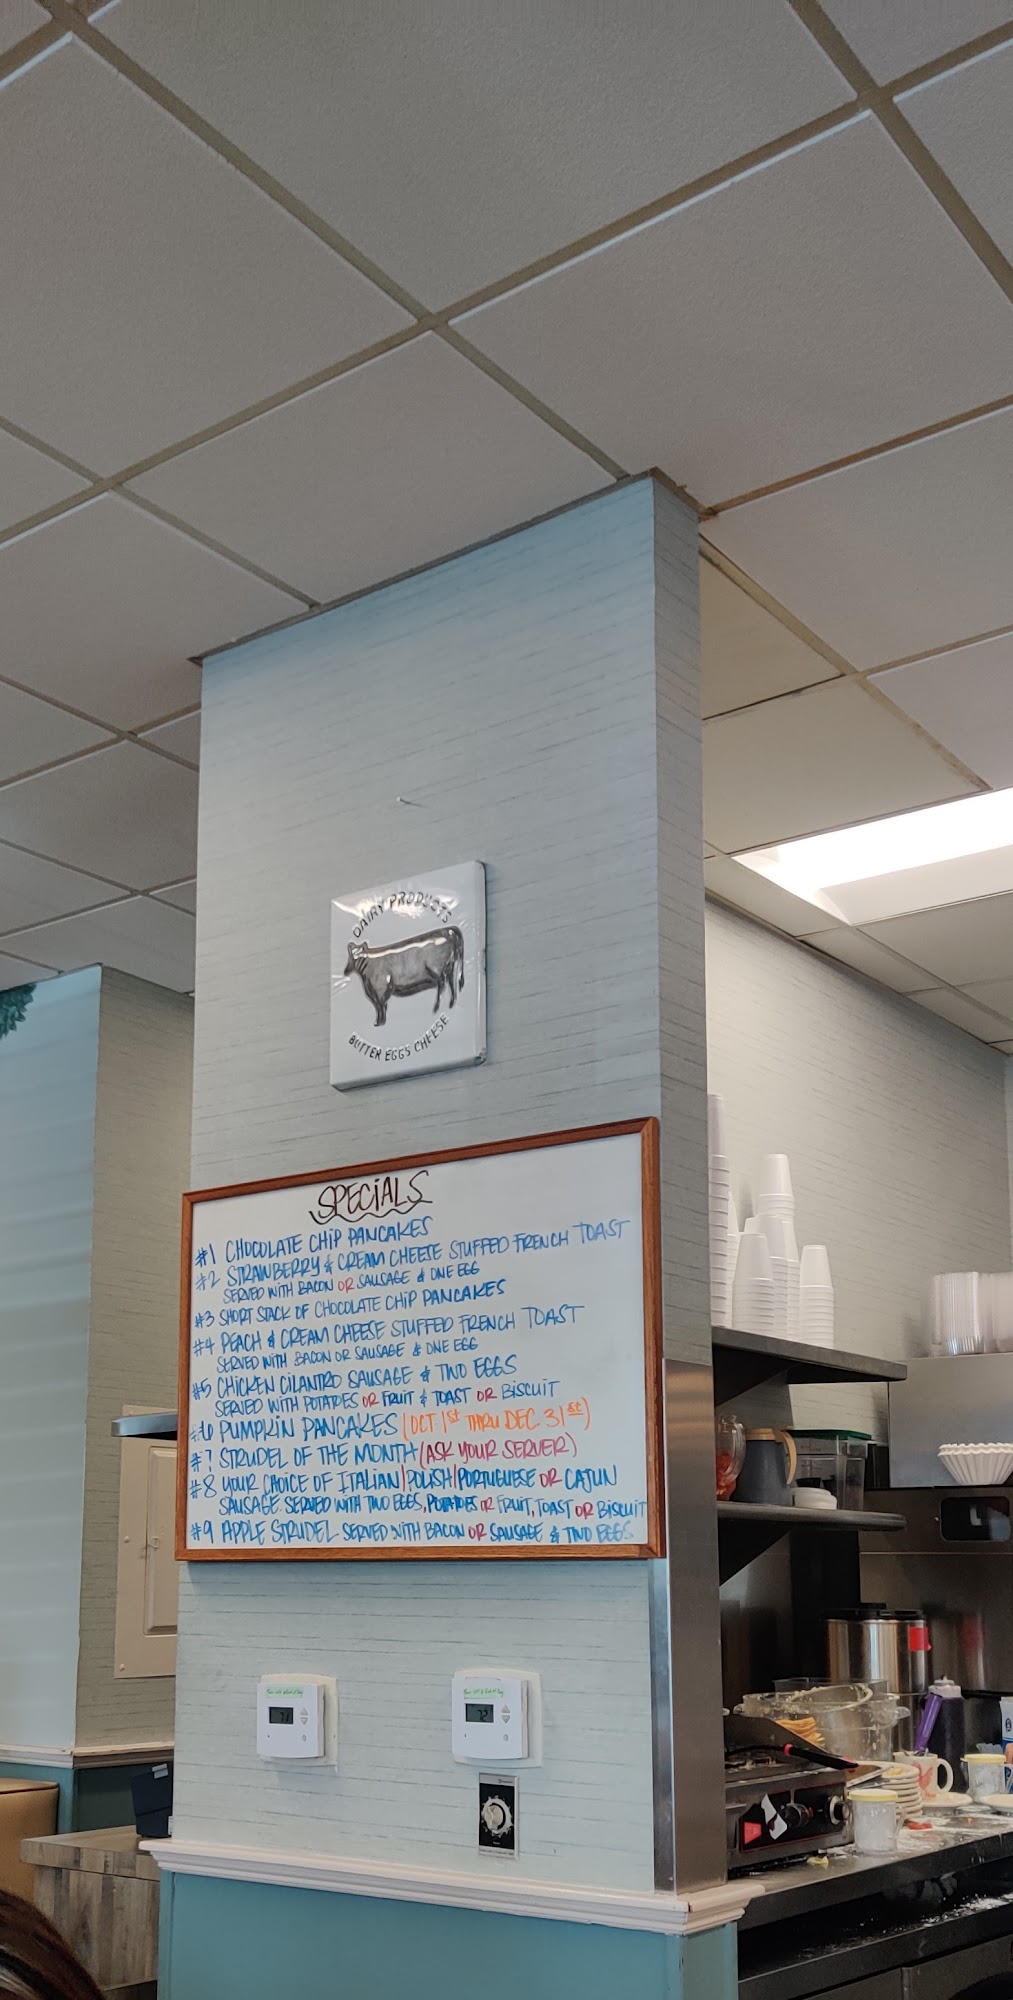 DAIRY PRODUCTS
BUTTER EGGS CHEESE
SPECIALS
#1 CHOCOLATE CHIP PANCAKES
#2 STRAWBERRY & CREAM CHEESE STUFFED FRENCH TOAST
SERVED WITH BACON OR SAUSAGE & ONE EGG
#3 SHORT STACK OF CHOCOLATE CHIP PANCAKES
#4 PEACH & CREAM CHEESE STUFFED FRENCH TOAST
SERVED WITH BACON OR SAUSAGE & ONE EGG
#5 CHICKEN CILANTRO SAUSAGE & TWO EGGS
SERVED WITH POTATOES OR FRUIT & TOAST OR BISCUIT
#6 PUMPKIN PANCAKES (OCT 1st THRU DEC 31st)
#7 STRUDEL OF THE MONTH (ASK YOUR SERVER)
#8 YOUR CHOICE OF ITALIAN/POLISH/PORTUGUESE OR CAJUN
SAUSAGE SERVED WITH TWO EGGS, POTATOES OR FRUIT, TOAST OR BISCUIT
#9 APPLE STRUDEL SERVED WITH BACON OR SAUSAGE & TWO EGGS
72